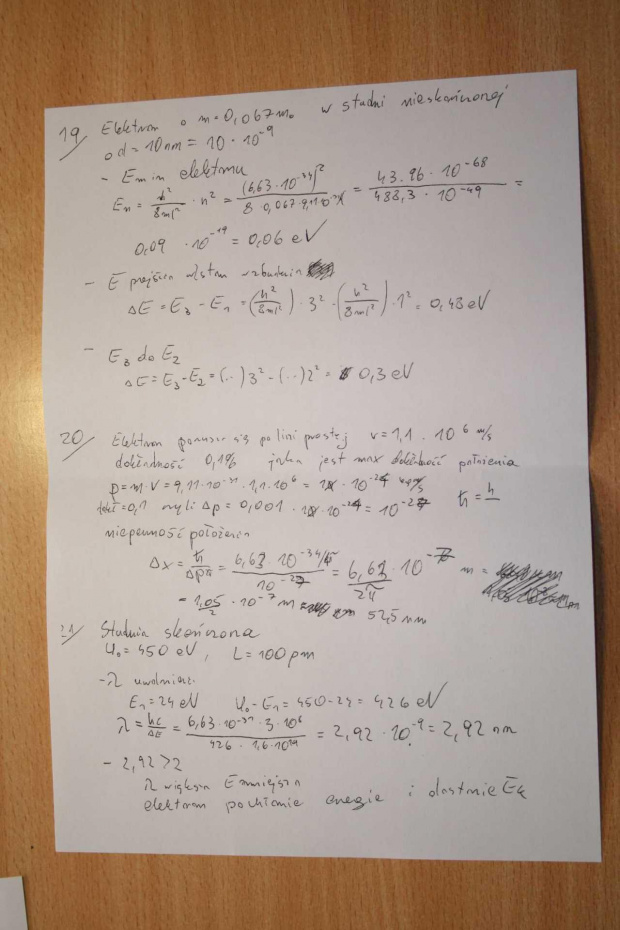 19/ Elektron o m=0,067m₀ w studni nieskończonej
o d=10nm = 10 · 10⁻⁹
- Emin elektronu
Eₙ = h²/8ml² · n² = (6,63·10⁻³⁴)²/8·0,067·9,11·10⁻³¹ = 43.96 · 10⁻⁶⁸/488,3 · 10⁻⁴⁹ =
0,09 · 10⁻¹⁹ = 0,06 eV
- E przejścia wzbudzenia
ΔE = E₃ - E₁ = (h²/8ml²) · 3² - (h²/8ml²) · 1² = 0,48 eV
- E₃ do E₂
ΔE = E₃-E₂ = (..)3² - (..)2² = 0,3 eV
20/ Elektron porusza się po lini prostej v=1,1 · 10⁶ m/s
dokładność 0,1% jaka jest max dokładność położenia
p=m·v = 9,11·10⁻³¹ · 1,1·10⁶ = · 10⁻²⁴
=0,1 czyli Δp = 0,001 · 10⁻²⁴ = 10⁻²⁷ ħ = h
niepewność położenia
Δx = ħ/Δp = 6,63 · 10⁻³⁴/10⁻²⁷ = 6,63/2π · 10⁻⁷ m =
= 1,05/2 · 10⁻⁷ m 52,5 nm
21 Studnia skończona
U₀ = 450 eV , L = 100 pm
-λ uwolnienia:
E₁ = 24 eV U₀-E₁ = 450-24 = 426 eV
λ = hc/ΔE = 6,63·10⁻³⁴ · 3·10⁸/426 · 1,6·10¹⁹ = 2,92 · 10⁻⁹ = 2,92 nm
- 2,92>2
λ większa E mniejsza
elektron pochłonie energie i dostanie Eₖ